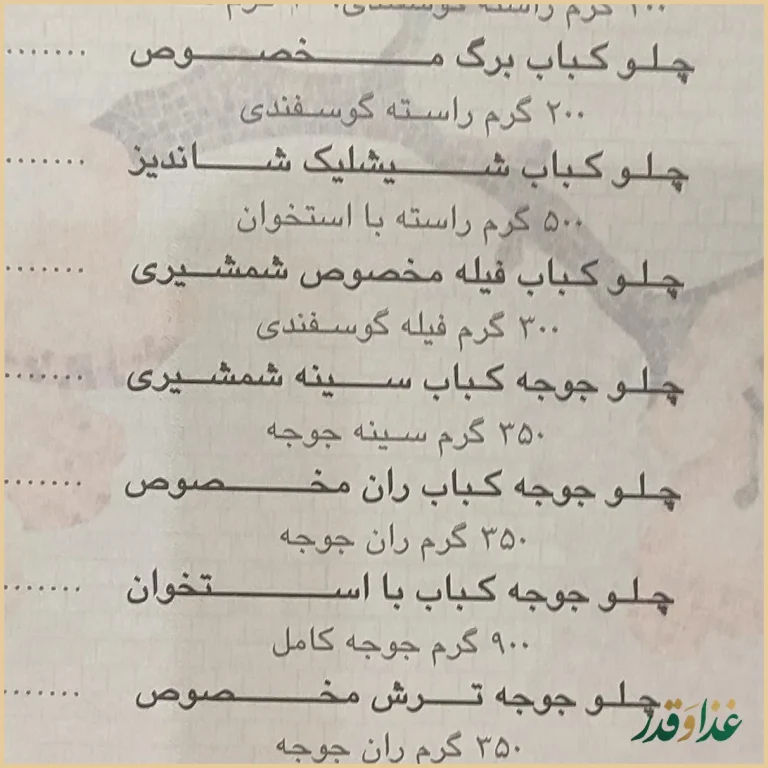 ۱۰۰ گرم راسته گوسفندی.
چلو کباب برگ مخصوص .......
۲۰۰ گرم راسته گوسفندی
چلو کباب شیشلیک شاندیز .......
۵۰۰ گرم راسته با استخوان
چلو کباب فیله مخصوص شمشیری .......
۳۰۰ گرم فیله گوسفندی
چلو جوجه کباب سینه شمشیری .......
۳۵۰ گرم سینه جوجه
چلو جوجه کباب ران مخصوص .......
۳۵۰ گرم ران جوجه
چلو جوجه کباب با استخوان .......
۹۰۰ گرم جوجه کامل
چلو جوجه ترش مخصوص .......
۳۵۰ گرم ران جوجه
غذا و قدر